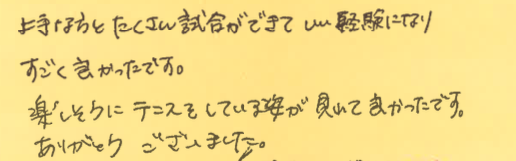 上手な方とたくさん試合ができていい経験になり
すごく良かったです。
楽しそうにテニスをしている姿が見れて良かったです。
ありがとうございました。